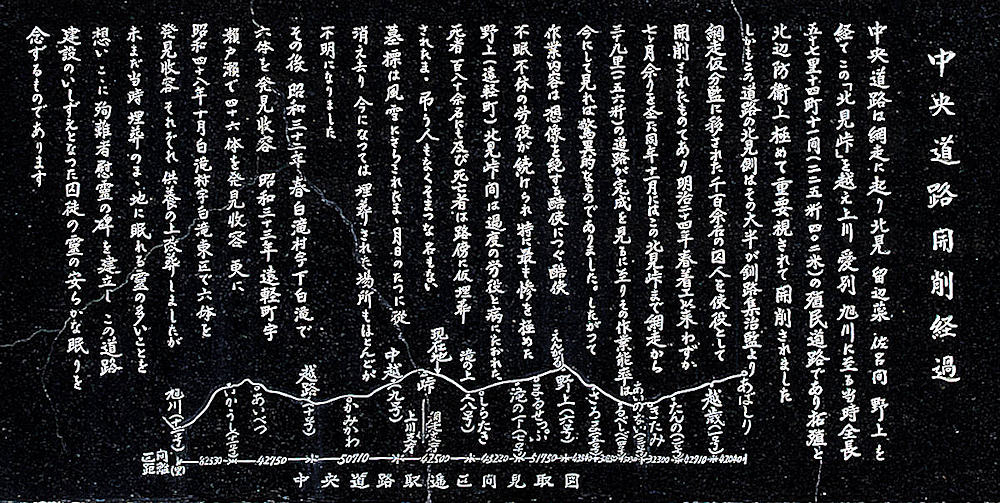 中央道路開削経過
中央道路は網走に起り北見 留辺蘂 佐呂間 野上を
経てこの「北見峠」を越え上川 愛別 旭川に至る当時全長
五十七里十四町十一間(二二五粁四〇〇米)の殖民道路であり拓殖と
北辺防衛上極めて重要視されて開削されました
しかしこの道路の北見側はその大半が釧路集治監より
網走仮分監に移された千百余名の囚人を使役して
開削されたものであり明治二十四年春着工以来わずか
七ヶ月余りを並に同年十一月にはこの北見峠まで網走から
三九里(一五六粁)の道路が完成を見るに至りその作業能率は
今にして見れば驚異的なものでありました。したがって
作業内容は 想像を絶する酷使につぐ酷使
不眠不休の労役が続けられ 特に最も惨を極めた
野上(遠軽町)北見峠間は過度の労役と病にたおれ
死者百八十余名にも及び死亡者は路傍に仮埋葬
されたまゝ 弔う人もなくそまつな名もない
墓標は風雪にさらされたまゝ月日のたつに従い
消え去り 今になっては 埋葬された場所もほとんど
不明になりました
その後 昭和三十二年春白滝村字下白滝で
六体を発見収容 昭和三十三年 遠軽町字
瀬戸瀬で四十六体を発見収容 更に
昭和四十八年十月白滝村字白滝東区で六体を
発見収容 それぞれ 供養の上改葬しましたが
未だ当時埋葬のまゝ地に眠れる霊の多いことを
想いここに殉難者慰霊の碑を建立し この道路
建設のいしずえとなった囚徒の霊の安らかな眠りを
念ずるものであります
旭川(十二号)
いかうし(十一号)
あいべつ
越路(十号)
かみかわ
中越(九号)
上川支庁
現在地
峠
網走支庁
滝の上(八号)
しらたき
滝の下(七号)
まるせっぷ
えんがる
野上(六号)
さろま(五号)
るべしべ(四号)
あいのない(三号)
きたみ
たんの(二号)
越歳(一号)
あばしり
区間距離(間)
42750
50710
42500
43220
51750
32300
42910
中央道路駅逓区間見取図